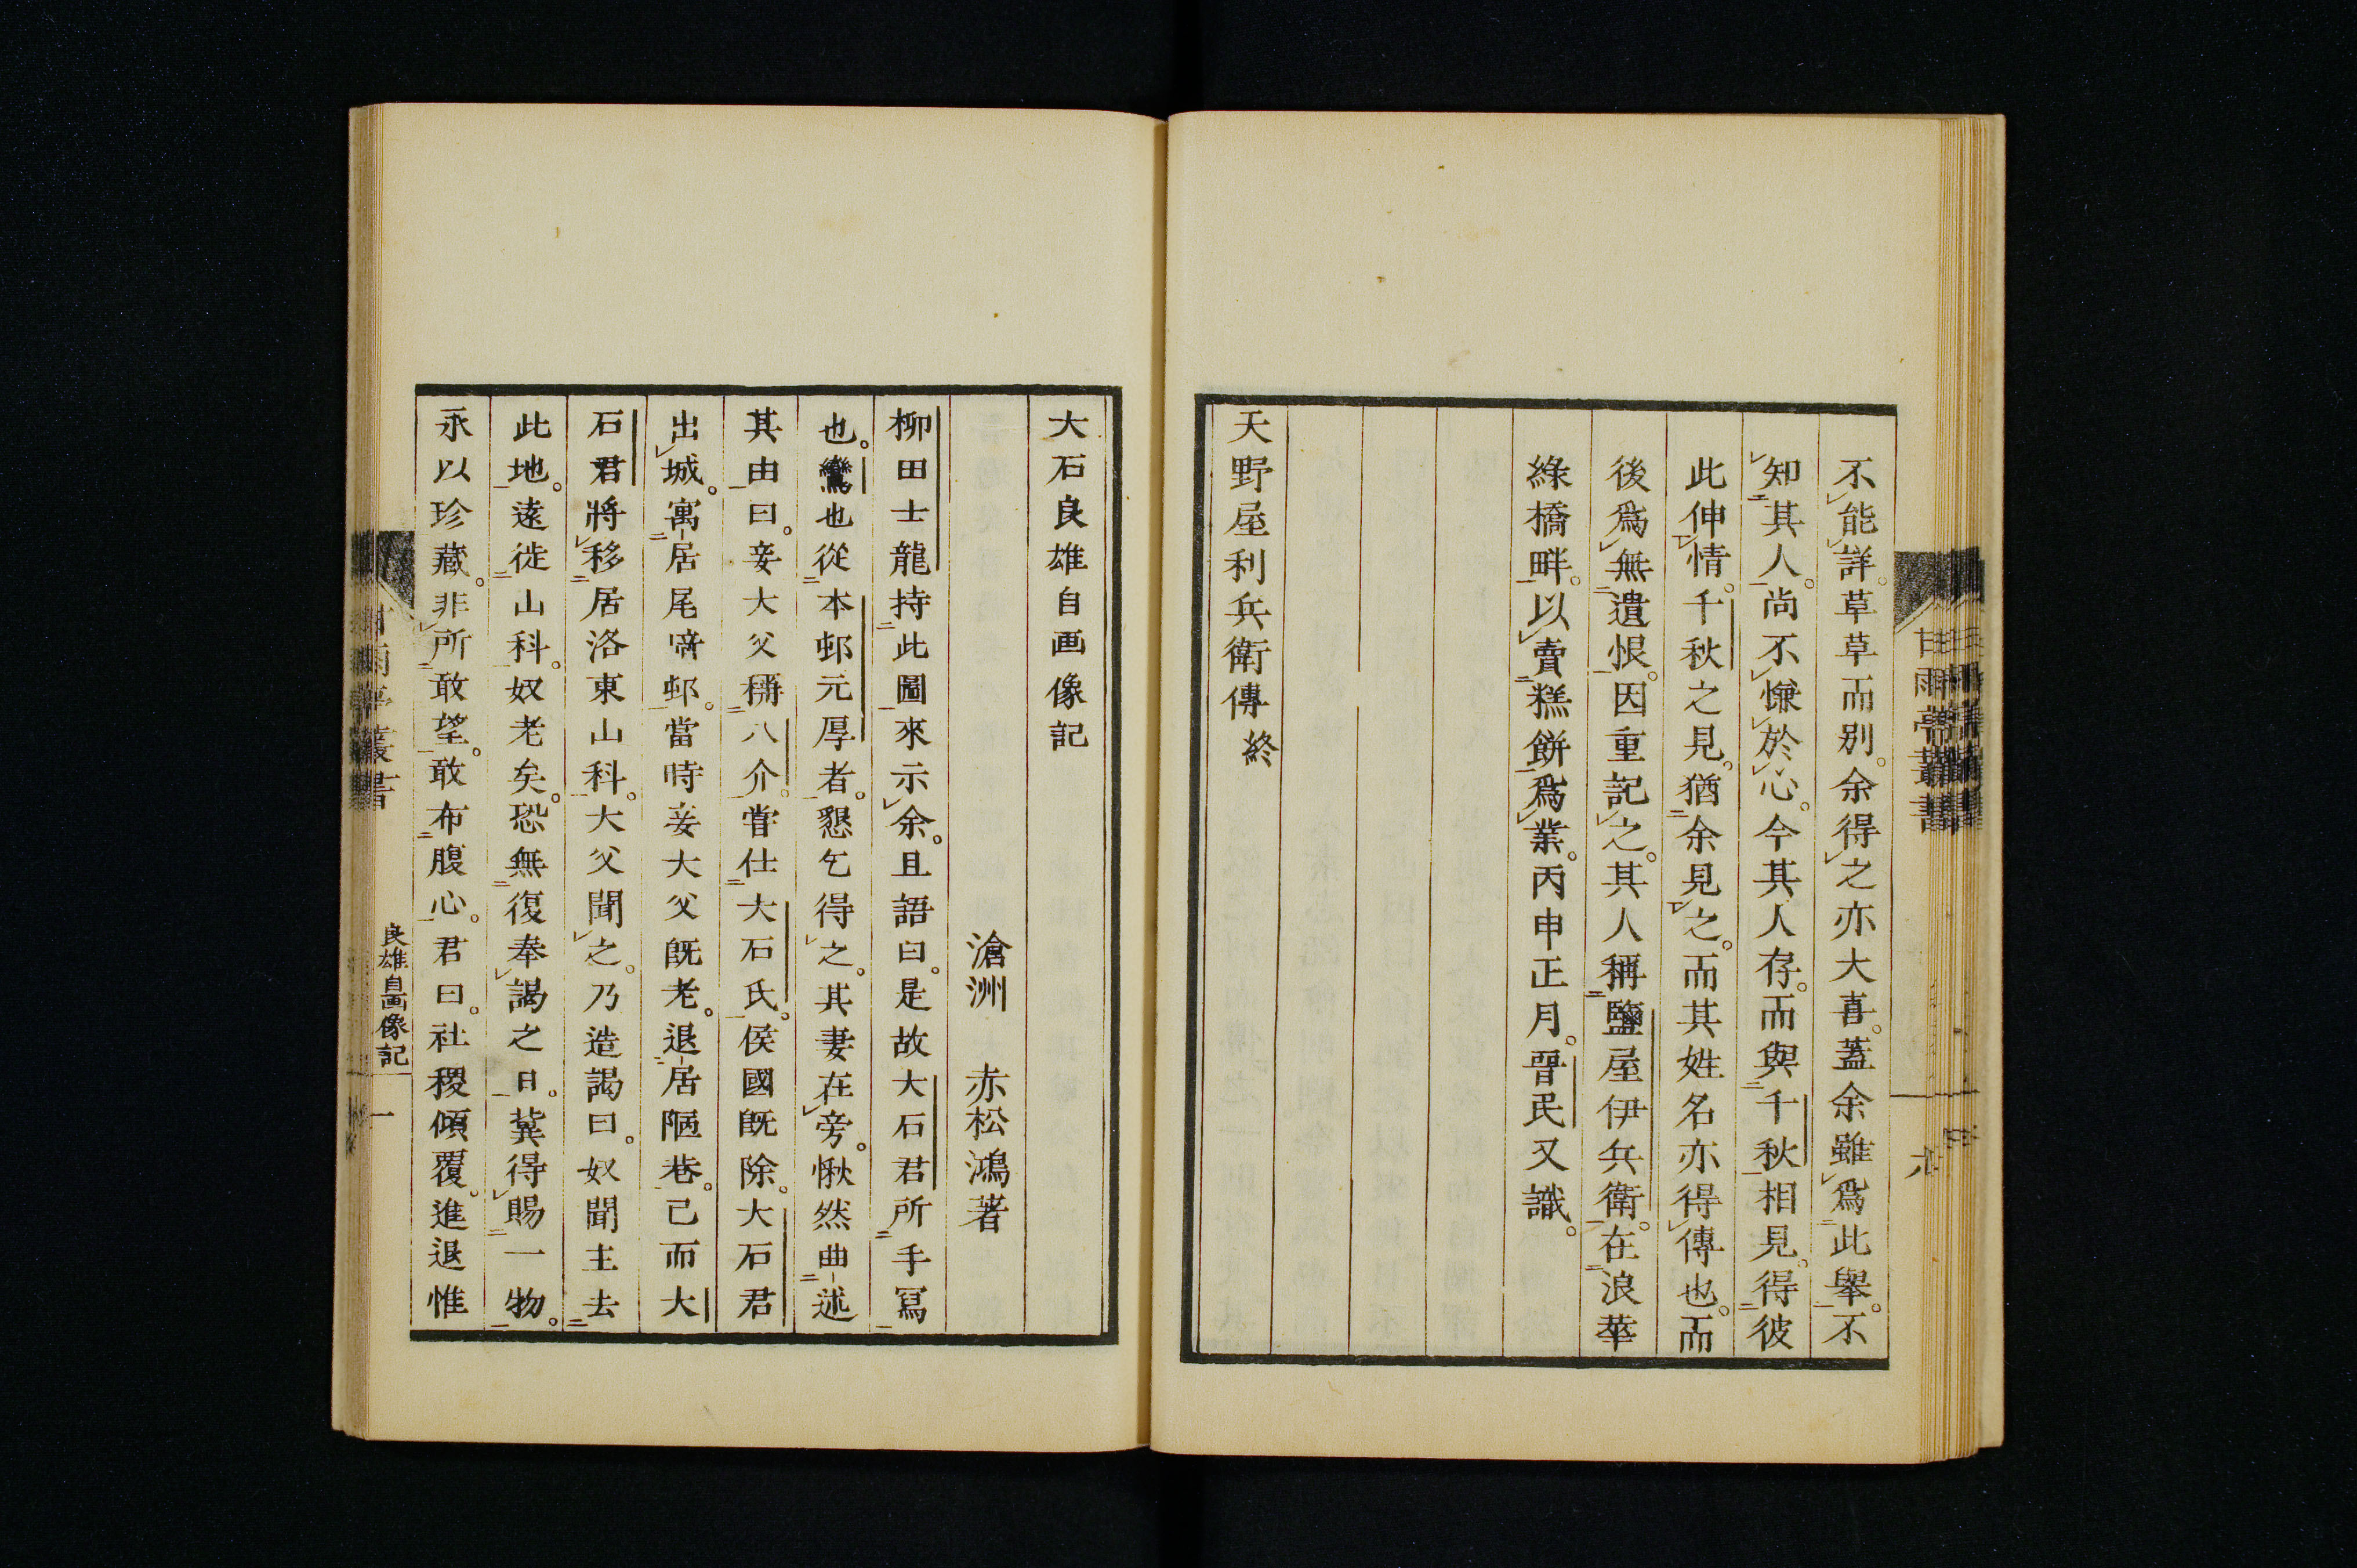 不能詳。草草而別。余得之亦大喜。蓋余雖爲此擧。不
知其人。尚不慊於心。今其人存。而與千秋相見。得彼
此伸情。千秋之見。猶余見之。而其姓名亦得傳也。而
後爲無遺恨。因重記之。其人稱鹽屋伊兵衛。在浪華
綠橋畔。以賣糕餅爲業。丙申正月。晉民又識。
天野屋利兵衛傳終
甘雨亭叢書
六
大石良雄自画像記
滄洲 赤松鴻著
柳田士龍持此圖來示余。且語曰。是故大石君所手冩
也。鸞也從本邨元厚者。懇乞得之。其妻在旁。愀然曲述
其由曰。妾大父稱八介。嘗仕大石氏。侯國既除。大石君
出城。寓居尾嵜邨。當時妾大父既老。退居陋巷。已而大
石君將移居洛東山科。大父聞之。乃造謁曰。奴聞主去
此地。遠徙山科。奴老矣。恐無復奉謁之日。冀得賜一物。
永以珍藏。非所敢望。敢布腹心。君曰。社稷傾覆。進退惟
甘雨亭叢書
良雄自画像記
一